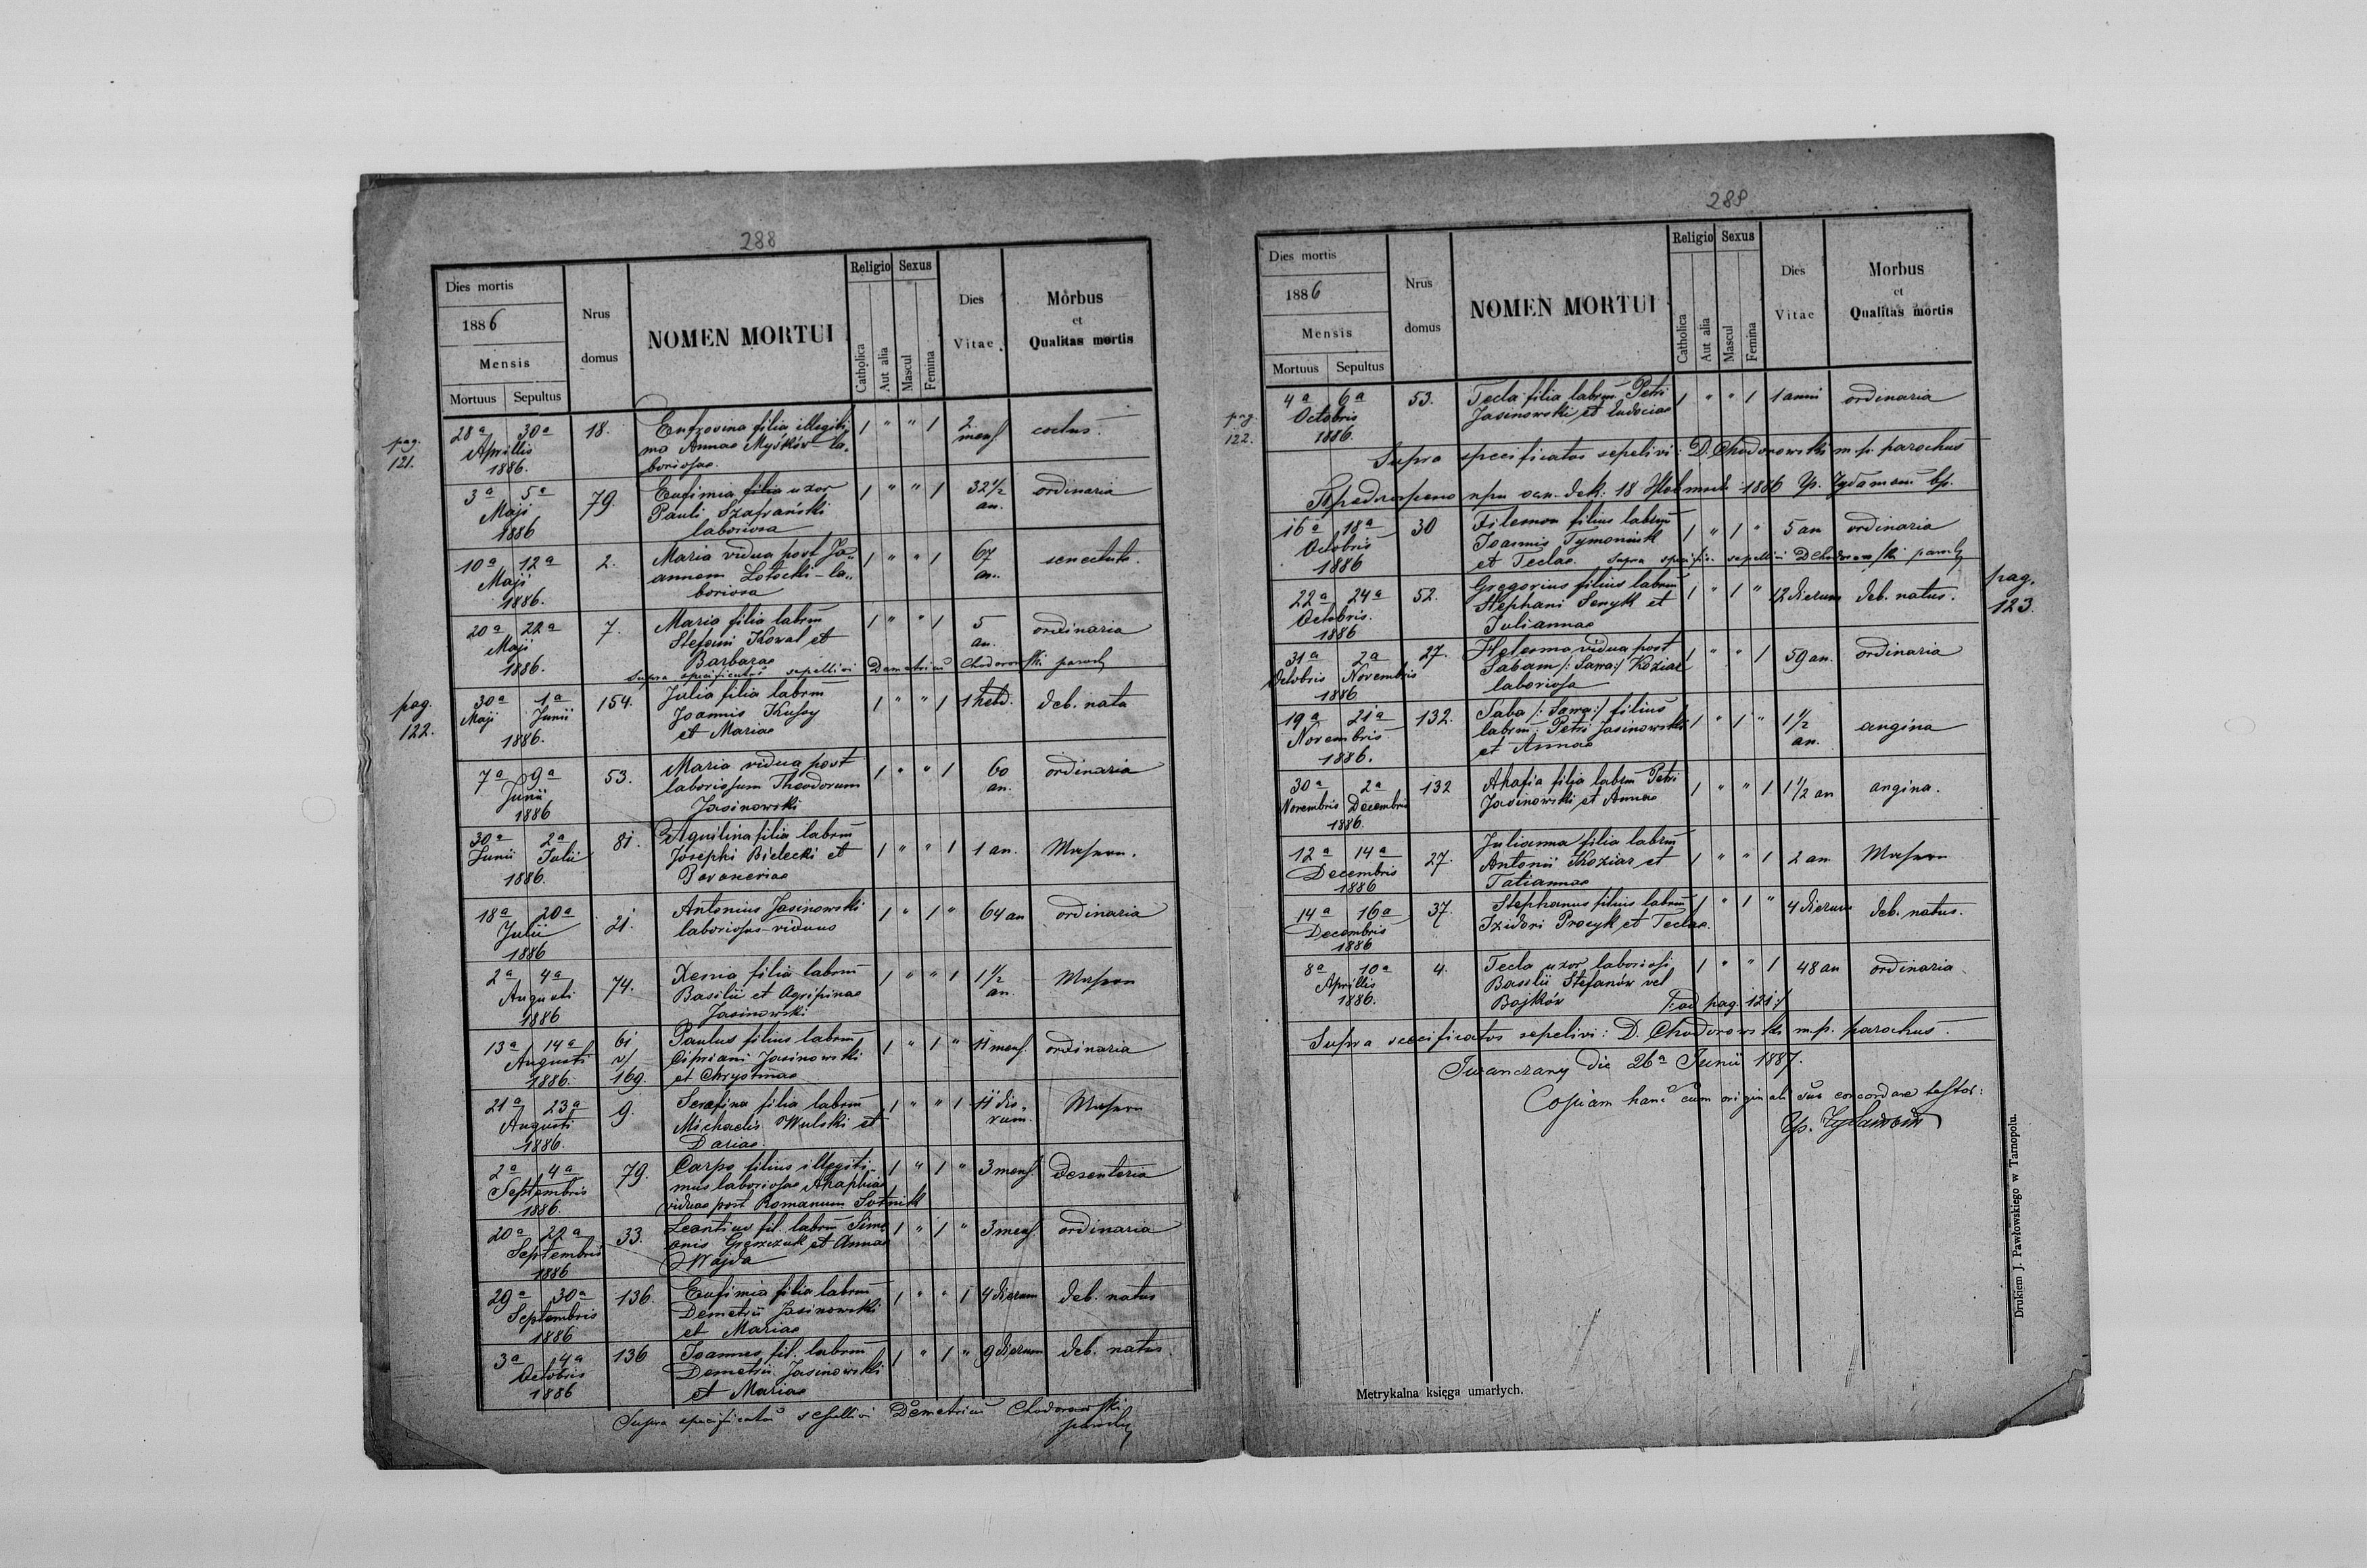 288
Dies mortis
1886
Mensis
Mortuus Sepultus
Nrus domus
NOMEN MORTUI
Religio
Catholica
Aut alia
Sexus
Mascul
Femina
Dies Vitae
Morbus
et
Qualitas mortis
pag. 121.
28ª 30ª Aprillis 1886. 18. Eufrosina filia illegiti-
ma Annae Myśków la-
boriosae. 1 " " 1 2 mens.
3ª 5ª Maji 1886 79. Eufimia filia uxor
Pauli Szafrański
laboriosa 1 " " 1 32 1/2 an. ordinaria
10ª 12ª Maji 1886. 2. Maria vidua post Jo-
annem Łotocki - la-
boriosa 1 " " 1 67 an. senectute.
20ª 22ª Maji 1886. 7. Maria filia labrm
Stefani Kowal et
Barbarae 1 " " 1 5 an. ordinaria
Supra specificatos sepellivi Demetrius Chodorowski paroch
pag. 122.
30ª Maji 1ª Junii 1886. 154. Julia filia labrm
Joannis
et Mariae 1 " " 1 1 hebd. deb. nata
7ª 9ª Junii 1886 53. Maria vidua post
laboriosum Theodorum
Jasinowski 1 " " 1 60 an. ordinaria
30ª Junii 2ª Julii 1886. 81. Aquilina filia labrm
Josephi Bielecki et
1 " " 1 1 an.
18ª 20ª Julii 1886 21. Antonius Jasinowski
laboriosus - viduus 1 " 1 " 64 an ordinaria
2ª 4ª Augusti 1886 74. Xenia filia labrm
Basilii et Agripinae
Jasinowski 1 " " 1 1 1/2 an
13ª 14ª Augusti 1886. 61 v/ 169. Paulus filius labrm
Cipriani Jasinowski
et Chrystinae 1 " 1 " 11 mens. ordinaria
21ª 23ª Augusti 1886. 9. Serafina filia labrm
Michaelis Wulski et
Dariae. 1 " " 1 11 die-
rum.
2ª 4ª Septembris 1886. 79. Carpo filius illegiti-
mus laboriosae Ahaphiae
viduae post Romanum Sotnik 1 " 1 " 3 mens. desenteria
20ª 22ª Septembris 1886 33. Leontius fil. labrm Sime-
onis Greszczuk et Annae
Wajda 1 " 1 " 3 mens. ordinaria
29ª 30ª Septembris 1886 136. Eufimia filia labrm
Demetrii Jasinowski
et Mariae 1 " " 1 4 dierum deb. natus
3ª 4ª Octobris 1886 136 Joannes fil. labrm
Demetrii Jasinowski
et Mariae 1 " 1 " 9 dierum deb. natus.
Supra specificatos sepellivi Demetrius Chodorowski
paroch
289
Dies mortis
1886
Mensis
Mortuus Sepultus
Nrus domus
NOMEN MORTUI
Religio
Catholica
Aut alia
Sexus
Mascul
Femina
Dies Vitae
Morbus
et
Qualitas mortis
pag. 122.
4ª 6ª Octobris 1886. 53. Tecla filia labrm Petri
Jasinowski et Eudociae 1 " " 1 1 anni ordinaria
Supra specificatos sepelivi: D. Chodorowski m. p. parochus
18 1886
16ª 18ª Octobris 1886 30 Filemon filius labrm
Joannis Tymoniuk
et Teclae. 1 " 1 " 5 an ordinaria
Supra specific. sepellivi D Chodorowski paroch
pag. 123.
22ª 24ª Octobris. 1886 52. Gregorius filius labrm
Stephani Senyk et
Juliannae 1 " 1 " 12 dierum deb. natus.
31ª Octobris 2ª Novembris 1886 27. Heleona vidua post
Sabam /: Sawa :/ Koziar
laboriosa 1 " " 1 59 an. ordinaria
19ª 21ª Novembris 1886. 132. Saba /: Sawa :/ filius
labrm. Petri Jasinowski
et Annae 1 " 1 " 1 1/2 an. angina
30ª Novembris 2ª Decembris 1886. 132 Ahafia filia labrm Petri
Jasinowski et Annae 1 " " 1 1 1/2 an angina.
12ª 14ª Decembris 1886 27. Julianna filia labrm
Antonii Koziar et
Tatiannae 1 " " 1 2 an
14ª 16ª Decembris 1886 37. Stephanus filius labrm
Izidori Procyk et Teclae. 1 " 1 " 4 dierum deb. natus.
8ª 10ª Aprillis 1886. 4. Tecla uxor laboriosi
Basilii Stefanów vel
Bojków 1 " " 1 48 an ordinaria
/: ad pag. 121 :/
Supra specificatos sepelivi: D. Chodorowski mp. parochus.
Iwanczany die 26ª Junii 1887.
Copiam hanc cum originali suo concordare testor:
Drukiem J. Pawłowskiego w Tarnopolu.
Metrykalna księga umarłych.